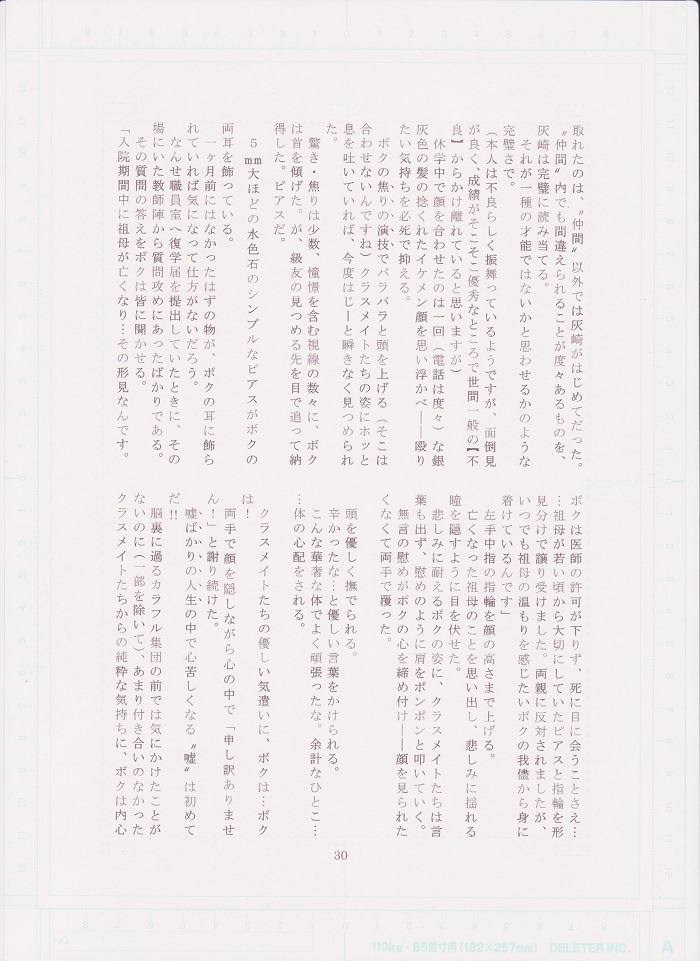 取れたのは、〝仲間〟以外では灰崎がはじめてだった。
〝仲間〟内でも間違えられることが度々あるものを、
灰崎は完璧に読み当てる。
それが一種の才能ではないかと思わせるかのような
完璧さで。
（本人は不良らしく振舞っているようですが、面倒見
が良く、成績がそこそこ優秀なところで世間一般の【不
良】からかけ離れていると思いますが）
休学中で顔を合わせたのは一回（電話は度々）な銀
灰色の髪の捻くれたイケメン顔を思い浮かべ――殴り
たい気持ちを必死で抑える。
ボクの焦りの演技でバラバラと頭を上げる（そこは
合わせないんですね）クラスメイトたちの姿にホッと
息を吐いていれば、今度はじーと瞬きなく見つめられ
た。
驚き・焦りは少数、憧憬を含む視線の数々に、ボク
は首を傾げた。が、級友の見つめる先を目で追って納
得した。ピアスだ。
５㎜大ほどの水色石のシンプルなピアスがボクの
両耳を飾っている。
一ヶ月前にはなかったはずの物が、ボクの耳に飾ら
れていれば気になって仕方がないだろう。
なんせ職員室へ復学届を提出していたときに、その
場にいた教師陣から質問攻めにあったばかりである。
その質問の答えをボクは皆に聞かせる。
「入院期間中に祖母が亡くなり…その形見なんです。
ボクは医師の許可が下りず、死に目に会うことさえ…
…祖母が若い頃から大切にしていたピアスと指輪を形
見分けで譲り受けました。両親に反対されましたが、
いつでも祖母の温もりを感じたいボクの我儘から身に
着けているんです」
左手中指の指輪を顔の高さまで上げる。
亡くなった祖母のことを思い出し、悲しみに揺れる
瞳を隠すように目を伏せた。
悲しみに耐えるボクの姿に、クラスメイトたちは言
葉も出ず、慰めのように肩をポンポンと叩いていく。
無言の慰めがボクの心を締め付け――顔を見られた
くなくて両手で覆った。
頭を優しく撫でられる。
辛かったな…と優しい言葉をかけられる。
こんな華奢な体でよく頑張ったな。余計なひとこ…
…体の心配をされる。
クラスメイトたちの優しい気遣いに、ボクは…ボク
は！
両手で顔を隠しながら心の中で「申し訳ありませ
ん！」と謝り続けた。
嘘ばかりの人生の中で心苦しくなる〝嘘〟は初めて
だ!!
脳裏に過るカラフル集団の前では気にかけたことが
ないのに（一部を除いて）、あまり付き合いのなかった
クラスメイトたちからの純粋な気持ちに、ボクは内心
30
110kg・B5原寸用(182×257mm) DELETER INC.
A
NO.